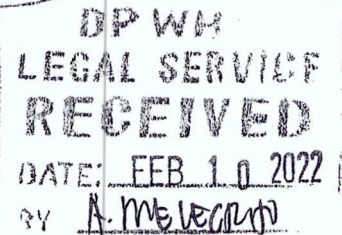 DPWH
LEGAL SERVICE
RECEIVED
DATE: FEB 10 2022
BY A.